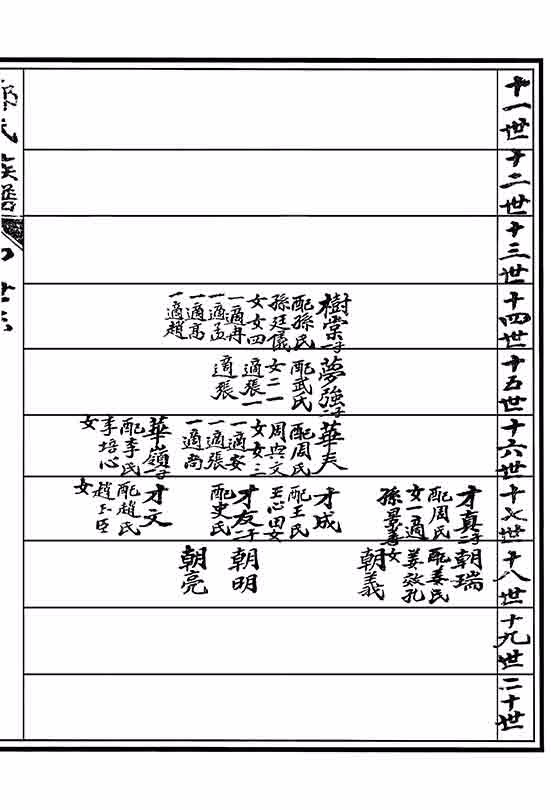 十一世
十二世
十三世
十四世
樹棠一子
配孫氏
孫廷儀
女女四
一適冉
一適孟
一適高
一適趙
十五世
夢強二子
配武氏
女二一
適張一
適張
十六世
華夫
配周氏
周典文
女女三
一適安
一適張
一適尚
華嶺一子
配李氏
李培心
女
十七世
才真二子
配周氏
女一適
孫
才成
配王氏
王心田女
才友二子
配史氏
才文
配趙氏
趙玉臣
女
十八世
朝瑞
配姜氏
姜效孔
女
朝義
朝明
朝亮
十九世
二十世
氏族譜